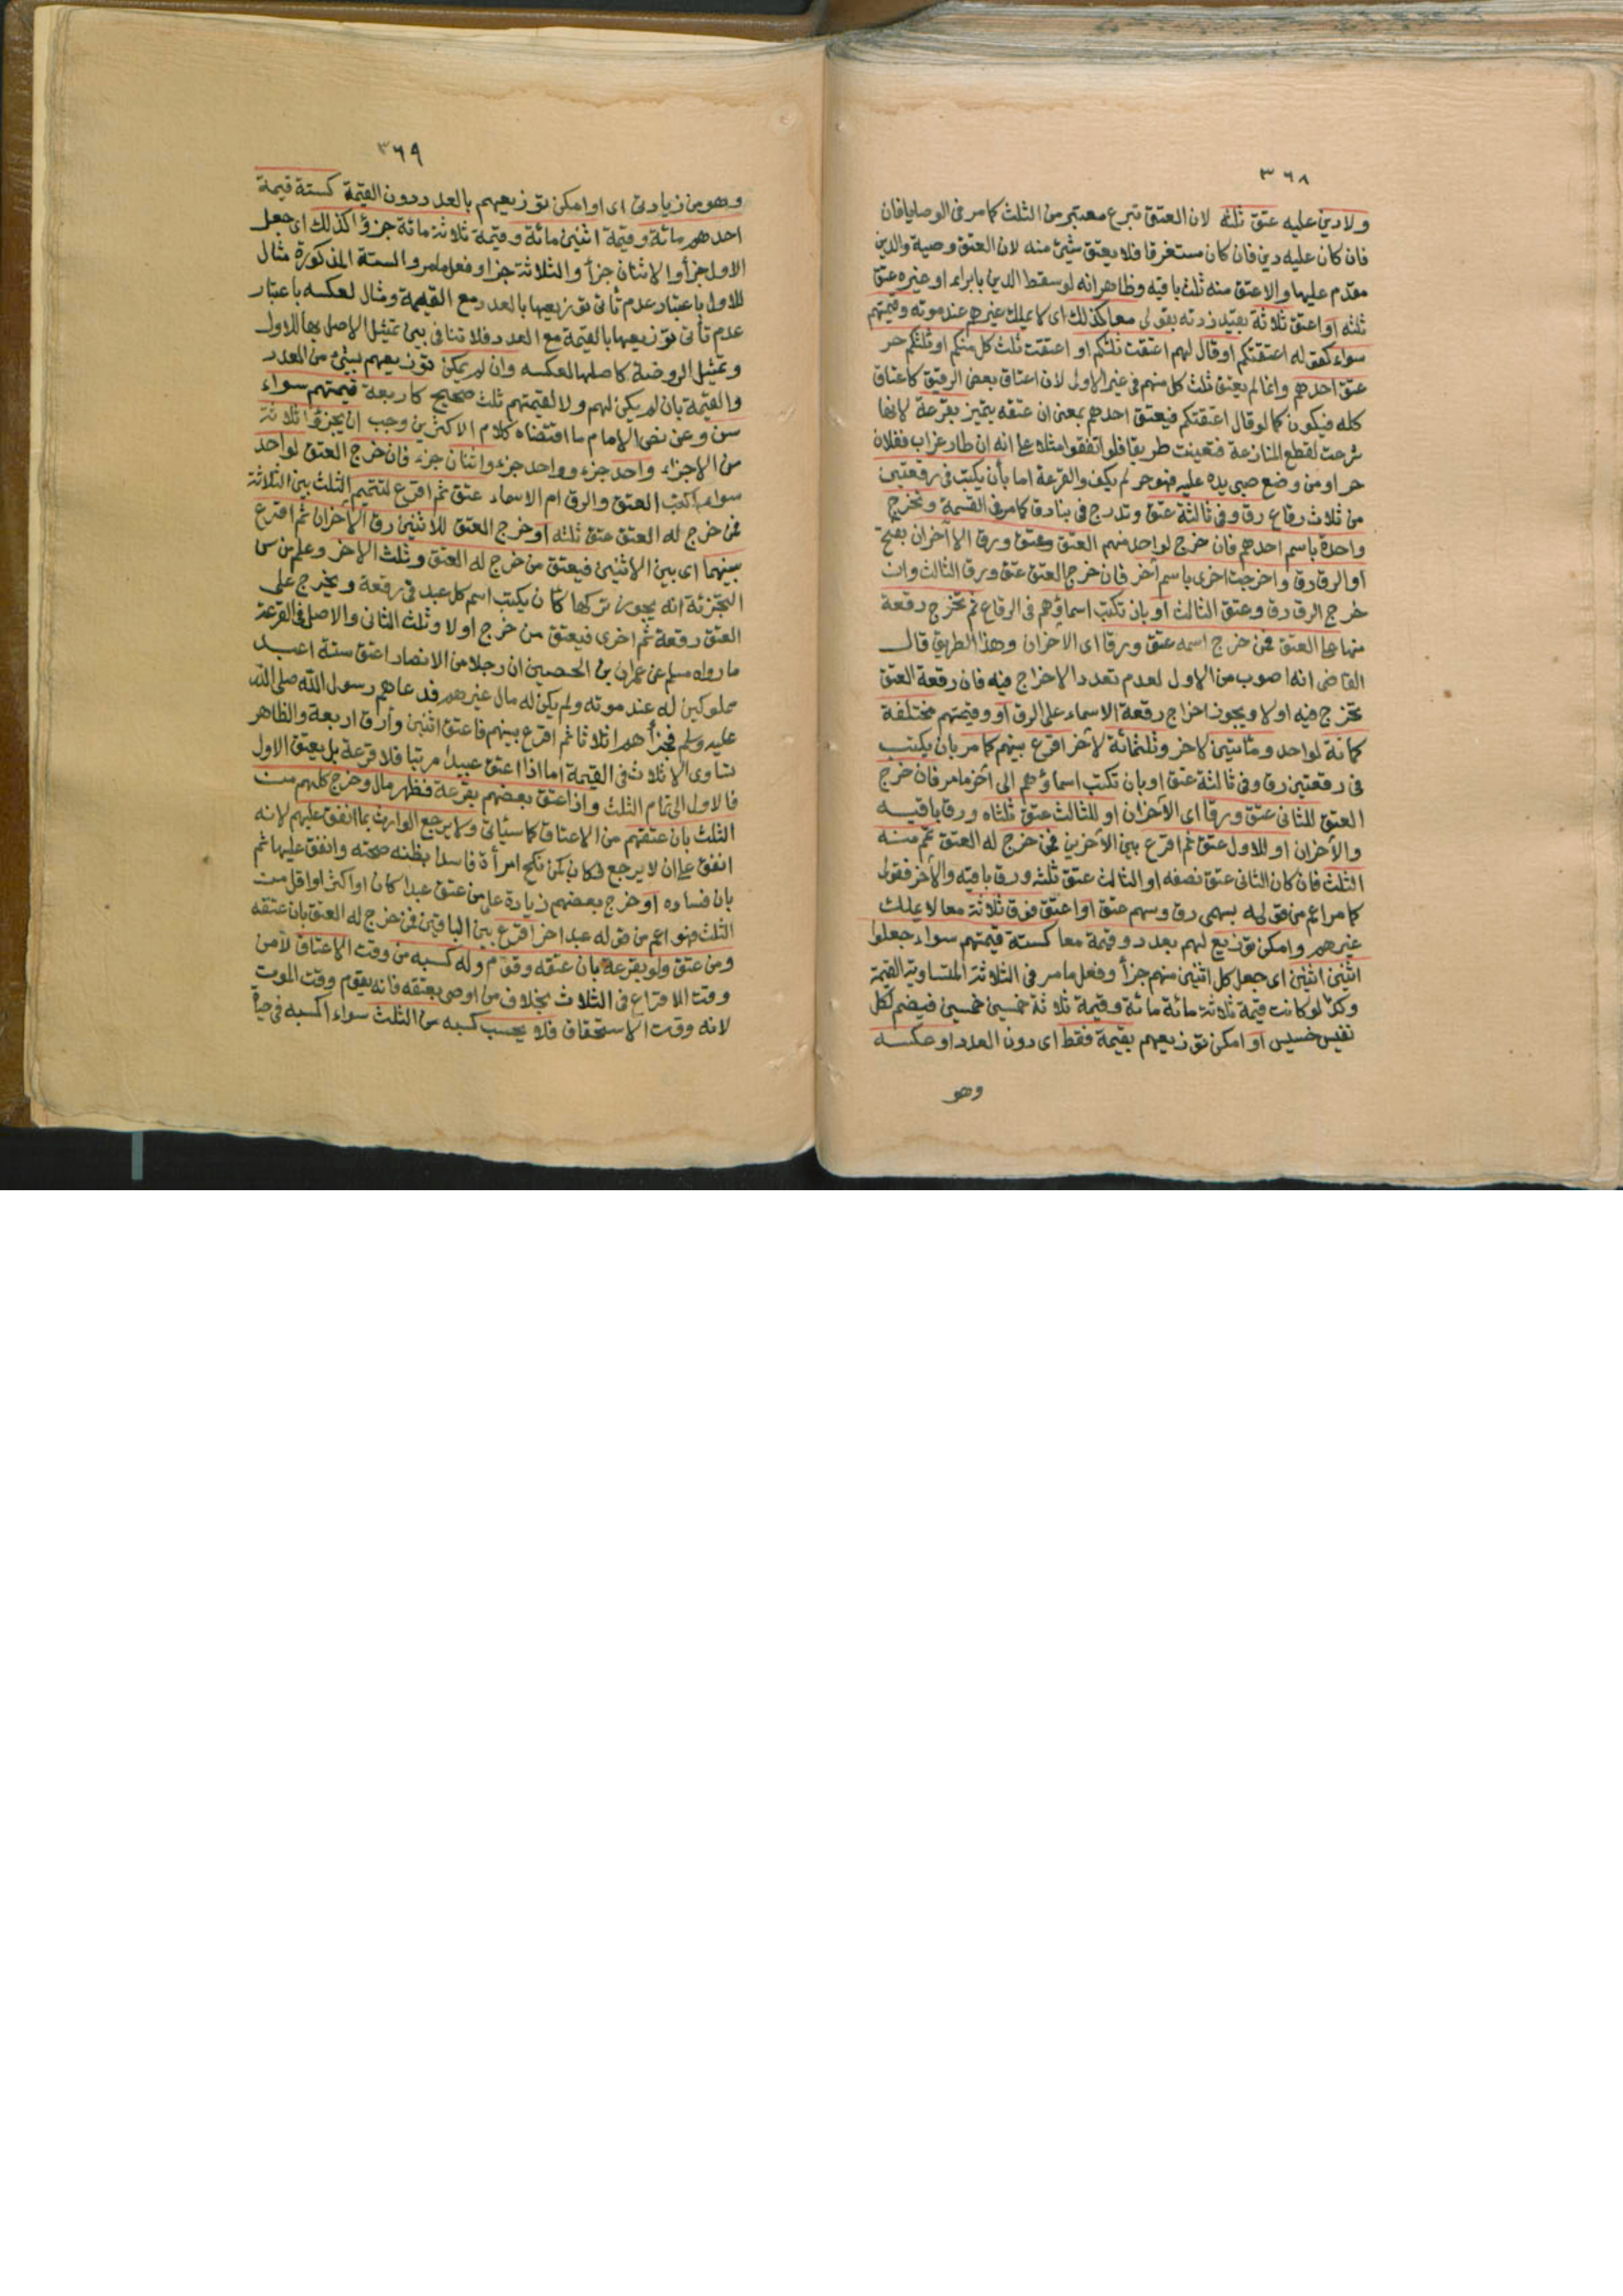 ٣٦٨
ولا دين عليه عتق ثلثه لان العتق تبرع معتبر من الثلث كما مر فى الوصايا فان
فان كان عليه دين فان كان مستغرقا فلا يعتق شيئ منه لان العتق وصية والدين
مقدم عليها والا عتق منه ثلث باقيه وظاهر انه لو سقط الدين بابراء او غيره عتق
ثلثه او اعتق ثلاثة بقيد زدته بقولى معا كذلك اى لا يملك غيرهم عند موته وقيمتهم
سواء كقوله اعتقتكم او قال لهم اعتقت ثلثكم او اعتقت ثلث كل منكم او ثلثكم حر
عتق احدهم وانما لم يعتق ثلث كل منهم فى غير الاولى لان اعتاق بعض الرقيق كاعتاق
كله فيكون كما لو قال اعتقتكم فيعتق احدهم بمعنى ان عتقه يتميز بقرعة لانها
شرعت لقطع المنازعة فتعينت طريقا فلو اتفقوا مثلا على انه ان طار غراب ففلان
حر او من وضع صبى يده عليه فهو حر لم يكف والقرعة اما بأن يكتب فى رقعتين
من ثلاث رقاع رق وفى ثالثة عتق وتدرج فى بنادق كما مر فى القسمة وتخرج
واحدة باسم احدهم فان خرج لواحد منهم العتق وعتق ورق الآخران بفتح
او الرق رق واخرجت اخرى باسم آخر فان خرج العتق عتق ورق الثالث وان
خرج الرق رق وعتق الثالث او بان تكتب اسماؤهم فى الرقاع ثم تخرج رقعة
منها على العتق فمن خرج اسمه عتق ورقا اى الآخران وهذا الطريق قال
القاضى انه اصوب من الاول لعدم تعدد الاخراج فيه فان رقعة العتق
تخرج فيه اولا ويجوز اخراج رقعة الاسماء على الرق او وقيمتهم مختلفة
كمائة لواحد ومائتين لاخر وثلثمائة لآخر اقرع بينهم كما مر بان يكتب
فى رقعتين رق وفى ثالثة عتق او بان تكتب اسماؤهم الى آخر ما مر فان خرج
العتق للثانى عتق ورقا اى الآخران او للثالث عتق ثلثاه ورق باقيه
والآخران او للاول عتق ثم اقرع بين الآخرين فمن خرج له العتق تمم منه
الثلث فان كان الثانى عتق نصفه او الثالث عتق ثلثه ورق باقيه والآخر فقولى
كما مر اعم من قوله بسهمى رق وسهم عتق او اعتق فوق ثلاثة معا لا يملك
غيرهم وامكن توزيع لهم بعدد وقيمة معا كستة قيمتهم سواء جعلوا
اثنين اثنين اى جعل كل اثنين منهم جزأ وفعل ما مر فى الثلاثة المتساوية القيمة
وكذا لو كانت قيمة ثلاثة مائة مائة وقيمة ثلاثة خمسين خمسين فيضم لكل
نفيس خسيس او امكن توزيعهم بقيمة فقط اى دون العدد او عكسه
وهو
٣٦٩
وهو من زيادتى اى او امكن توزيعهم بالعدد دون القيمة كستة قيمة
احدهم مائة وقيمة اثنين مائة وقيمة ثلاثة مائة جزؤا كذلك اى جعل
الاول جزأ والاثنان جزأ والثلاثة جزأ وفعل ما مر والستة المذكورة مثال
للاول باعتبار عدم تأتى توزيعها بالعدد مع القيمة ومثال لعكسه باعتبار
عدم تأتى توزيعها بالقيمة مع العدد فلا تنافى بين تمثيل الاصل بها للاول
وتمثيل الروضة كاصلها لعكسه وان لم يمكن توزيعهم بشئ من العدد
والقيمة بان لم يكن لهم ولا لقيمتهم ثلث صحيح كاربعة قيمتهم سواء
سن وعن نص الإمام ما اقتضاه كلام الاكثرين وجب ان يجزؤا ثلاثة
من الاجزاء واحد جزء وواحد جزء واثنان جزء فان خرج العتق لواحد
سواء اكتب العتق والرق ام الاسماء عتق ثم اقرع لتتميم الثلث بين الثلاثة
فمن خرج له العتق عتق ثلثه او خرج العتق للاثنين رق الآخران ثم اقرع
بينهما اى بين الاثنين فيعتق من خرج له العتق وثلث الاخر وعلم من سن
التجزئة انه يجوز تركها كأن يكتب اسم كل عبد فى رقعة ويخرج على
العتق رقعة ثم اخرى فيعتق من خرج اولا وثلث الثانى والاصل فى القرعة
ما رواه مسلم عن عمران بن الحصين ان رجلا من الانصار اعتق ستة اعبد
مملوكين له عند موته ولم يكن له مال غيرهم فدعاهم رسول الله صلى الله
عليه وسلم فجزأهم اثلاثا ثم اقرع بينهم فاعتق اثنين وأرق اربعة والظاهر
تساوى الاثلاث فى القيمة اما اذا اعتق عبيدا مرتبا فلا قرعة بل يعتق الاول
فالاول الى تمام الثلث واذا عتق بعضهم بقرعة فظهر مال وخرج كلهم من
الثلث بان عتقهم من الاعتاق كما سيأتى ولا يرجع الوارث بما انفق عليهم لانه
انفق على ان لا يرجع فكان كمن نكح امرأة فاسدا بظنه صحته وانفق عليها ثم
بان فساده او خرج بعضهم زيادة على من عتق عبدا كان او اكثر او اقل من
الثلث فهو اعم من قوله عبد اخر اقرع بين الباقين فمن خرج له العتق بان عتقه
ومن عتق ولو بقرعة بان عتقه وقوم وله كسبه من وقت الاعتاق لا من
وقت الاقتراع فى الثلاث بخلاف من اوصى بعتقه فانه يقوم وقت الموت
لانه وقت الاستحقاق فلا يحسب كسبه من الثلث سواء اكسبه فى حياة